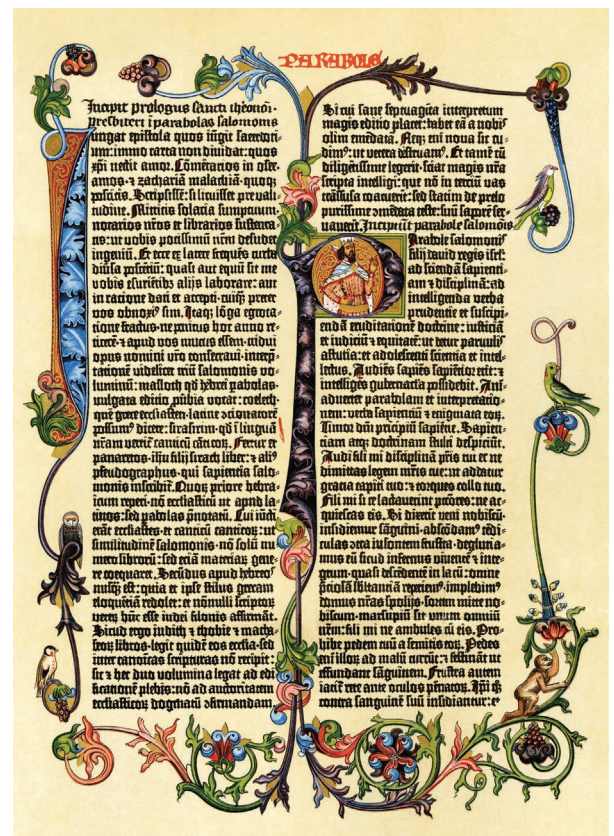 PARABOLE
Incipit prologus sancti iheronimi
presbiteri ī parabolas salomonis
Iungat epistola quos iūgit sacerdoti-
um: immo carta non dividat: quos
xp̄i nectit amor. Cōmētarios in osee.
amos. ⁊ zachariā malachiā. quoq̨
poscitis. Scripsissē: si licuisset pre vali-
tudine. Mittitis solacia sumptuum.
notarios nr̄os et librarios sustenta-
tis: ut vobis potissimū nr̄m desudet
ingeniū. Et ecce ex latere frequēs turba
diūsa poscētiū: quasi aut equū sit me
vobis esuriētibꝫ alijs laborare: aut
in ratione dati et accepti. cuiq̄ȝ preter
vos obnoxiꝰ sim. Itaqꝫ lōga egrota-
tione fractus. ne penitus hoc anno re-
ticerē. ⁊ apud vos mutus essem. tridui
opus nomini vr̄o consecravi. interp̄-
tationē videlicet triū salomonis vo-
luminū: masloth qd̄ hebrei ꝑabolas.
vulgata editio ꝓūbia vocat: coeleth.
quē grece ecclesiasten. latine ↄcionatorē
possumꝰ dicere: sirasirim. qd̄ ī linguā
nr̄am vertit᷑ canticū cāticoꝝ. Fertur et
panaretos. ihū filij sirach liber: ⁊ aliꝰ
pseudographus. qui sapientia salo-
monis inscribit᷑. Quoꝝ priore hebra-
icum reperi. nō ecclesiasticū ut apud la-
tinos: sed ꝑabolas p̄notatū. Cui iūcti
erāt ecclesiastes. et canticū canticoꝝ: ut
similitudinē salomonis. nō solū nu-
mero librorū: sed etiā materiaꝝ gene-
re coequaret. Secūdus apud hebreos
nusq̄ȝ est: quia et ipse stilus grecam
eloquētiā redolet: et nōnulli scriptoꝝ
veteꝝ hūc esse iudei filonis affirmāt.
Sicud ergo iudith ⁊ thobie ⁊ macha-
beoꝝ libros. legit quidē eos ecclesia. sed
inter canōicas scripturas nō recipit:
sic ⁊ hec duo volumina legat ad edi-
ficationē plebis: nō ad auctoritatem
ecclesiasticoꝝ dogmatū ↄfirmandam.
Si cui sane septuaginta interpretum
magis editio placet: habet eā a nobis
olim emēdatā. Neqꝫ eni nova sic cu-
dimꝰ: ut vetera destruamꝰ. Et tamē cū
diligētissime legerit. sciat magis nr̄a
scripta intelligi: que nō in terciū vas
trāsfusa coacuerīt: sed statim de prelo
purissime ↄmēdata teste: suū sapōrē ser-
vaverīt. Incipiunt parabole salomōis
Parabole salomonis
filij david regis isrl̄:
ad sciendā sapienti-
am ⁊ disciplinā: ad
intelligenda verba
prudentie et suscipi-
endā eruditationē doctrine: iusticiā
et iudiciū ⁊ equitatē: ut detur parvulis
astutia: et adolescenti scientia et intel-
lectus. Audiēs sapiēs sapiētior erit: ⁊
intelligēs gubernacla possidebit. Ani-
advertet parabolam et interpretatio-
nem: verba sapientiū ⁊ enigmata eoꝝ.
Timor dn̄i principiū sapiētie. Sapien-
tiam atqꝫ doctrinam stulti despiciūt.
Audi fili mi disciplinā pr̄is tui et ne
dimittas legem mr̄is tue: ut addatur
gracia capiti tuo: ⁊ torques collo tuo.
Fili mi si te lactaverint pctōres: ne ac-
quiescas eis. Si dixerīt veni nobiscū.
insidiemur sāguini. abscōdamꝰ tēdi-
culas ↄtra insontem frustra. deglutia-
mus eū sicud infernus viventē ⁊ inte-
grum. quasi descēdentē in lacū: omnē
p̄ciosā sb̄stantiā reperiemꝰ. implebimꝰ
domus nr̄as spolijs. sortem mitte no-
biscum. marsupiū sit unum omniū
nr̄m: fili mi ne ambules cū eis. Pro-
hibe pedem tuū a semitis eoꝝ. Pedes
eni illoꝝ ad malū currūt: ⁊ festināt ut
effundant sāguinem. Frustra autem
iacit᷑ rete ante oculos pēnatoꝝ. Ipi q̨
contra sanguinē suū insidiantur: et